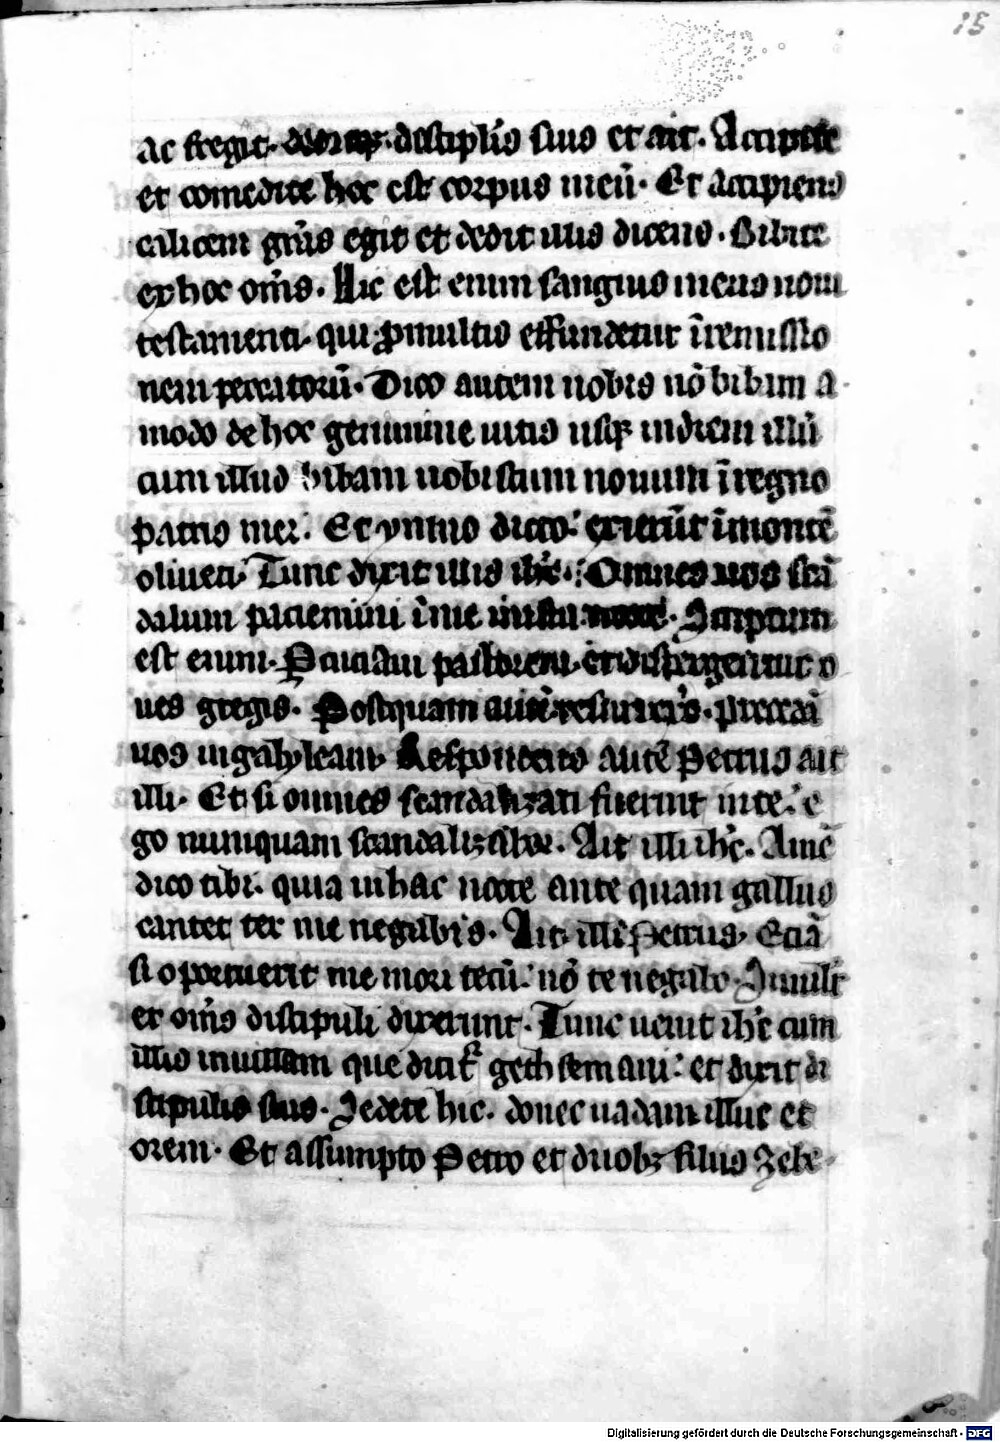 15
ac fregit. deditqȝ discipl̄is suis et ait. Accipite
et comedite hoc est corpus meū. Et accipiens
calicem gr̄as egit et dedit illis dicens. Bibite
ex hoc om̄s. Hic est enim sanguis meus noui
testamenti. qui ꝓ multis effundetur ī remissio
nem peccatorū. Dico autem uobis nō bibam a
modo de hoc genimine uitis usqȝ in diem illū
cum illud bibam uobiscum nouum ī regno
patris mei. Et ymno dicto. exierūt ī montē
oliueti. Tunc dixit illis ih̄c. Omnes uos scā
dalum paciemini ī me in ista nocte. Scriptum
est enim. Percuciam pastorem. et dispergentur o
ues gregis. Postquam autē resurrex̄o. precedā
uos in galyleam. Respondens autē Petrus ait
illi. Et si omnes scandalizati fuerint in te. e
go numquam scandalizabor. Ait illi ih̄c. Amē
dico tibi. quia in hac nocte ante quam gallus
cantet ter me negabis. Ait illi Petrus. Eciā
si oportuerit me mori tecū. nō te negabo. Simil̄r
et om̄s discipuli dixerunt. Tunc uenit ih̄c cum
illis in uillam que dicit᷑ gethsemani. et dixit di
scipulis suis. Sedete hic. donec uadam illuc et
orem. Et assumpto Petro et duobȝ filiis Zebe
Digitalisierung gefördert durch die Deutsche Forschungsgemeinschaft - DFG